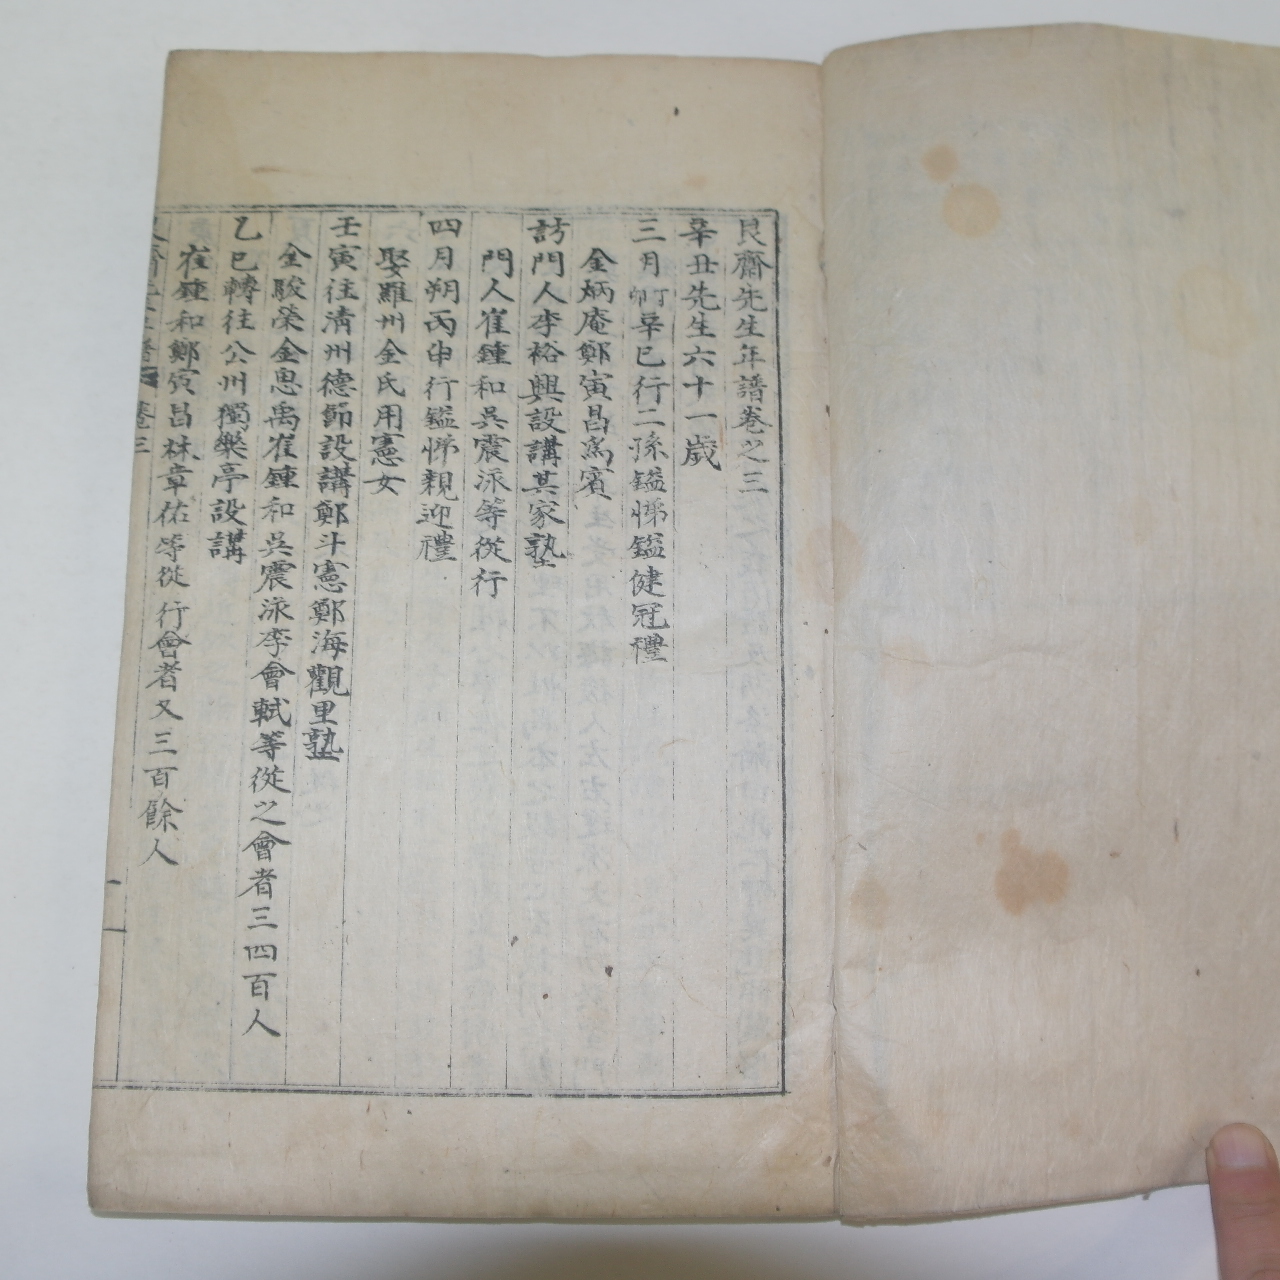 艮齋先生年譜卷之三
辛丑先生六十一歲
三月丁卯辛巳行二孫鎰悌鎰健冠禮
金炳庵鄭寅昌爲賓
訪門人李裕興設講其家塾
門人崔鍾和吳震泳等從行
四月朔丙申行鎰悌親迎禮
娶羅州金氏用憲女
壬寅往淸州德節設講鄭斗憲鄭海觀里塾
金駿榮金思禹崔鍾和吳震泳李會軾等從之會者三四百人
乙巳轉往公州獨樂亭設講
崔鍾和鄭寅昌林章佑等從行會者又三百餘人
艮齋先生年譜 卷三 一